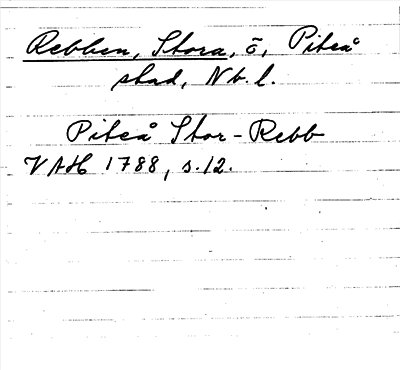 Rebben, Stora, ö, Piteå
stad, Nb. l.
Piteå Stor-Rebb
VAH 1788, s. 12.